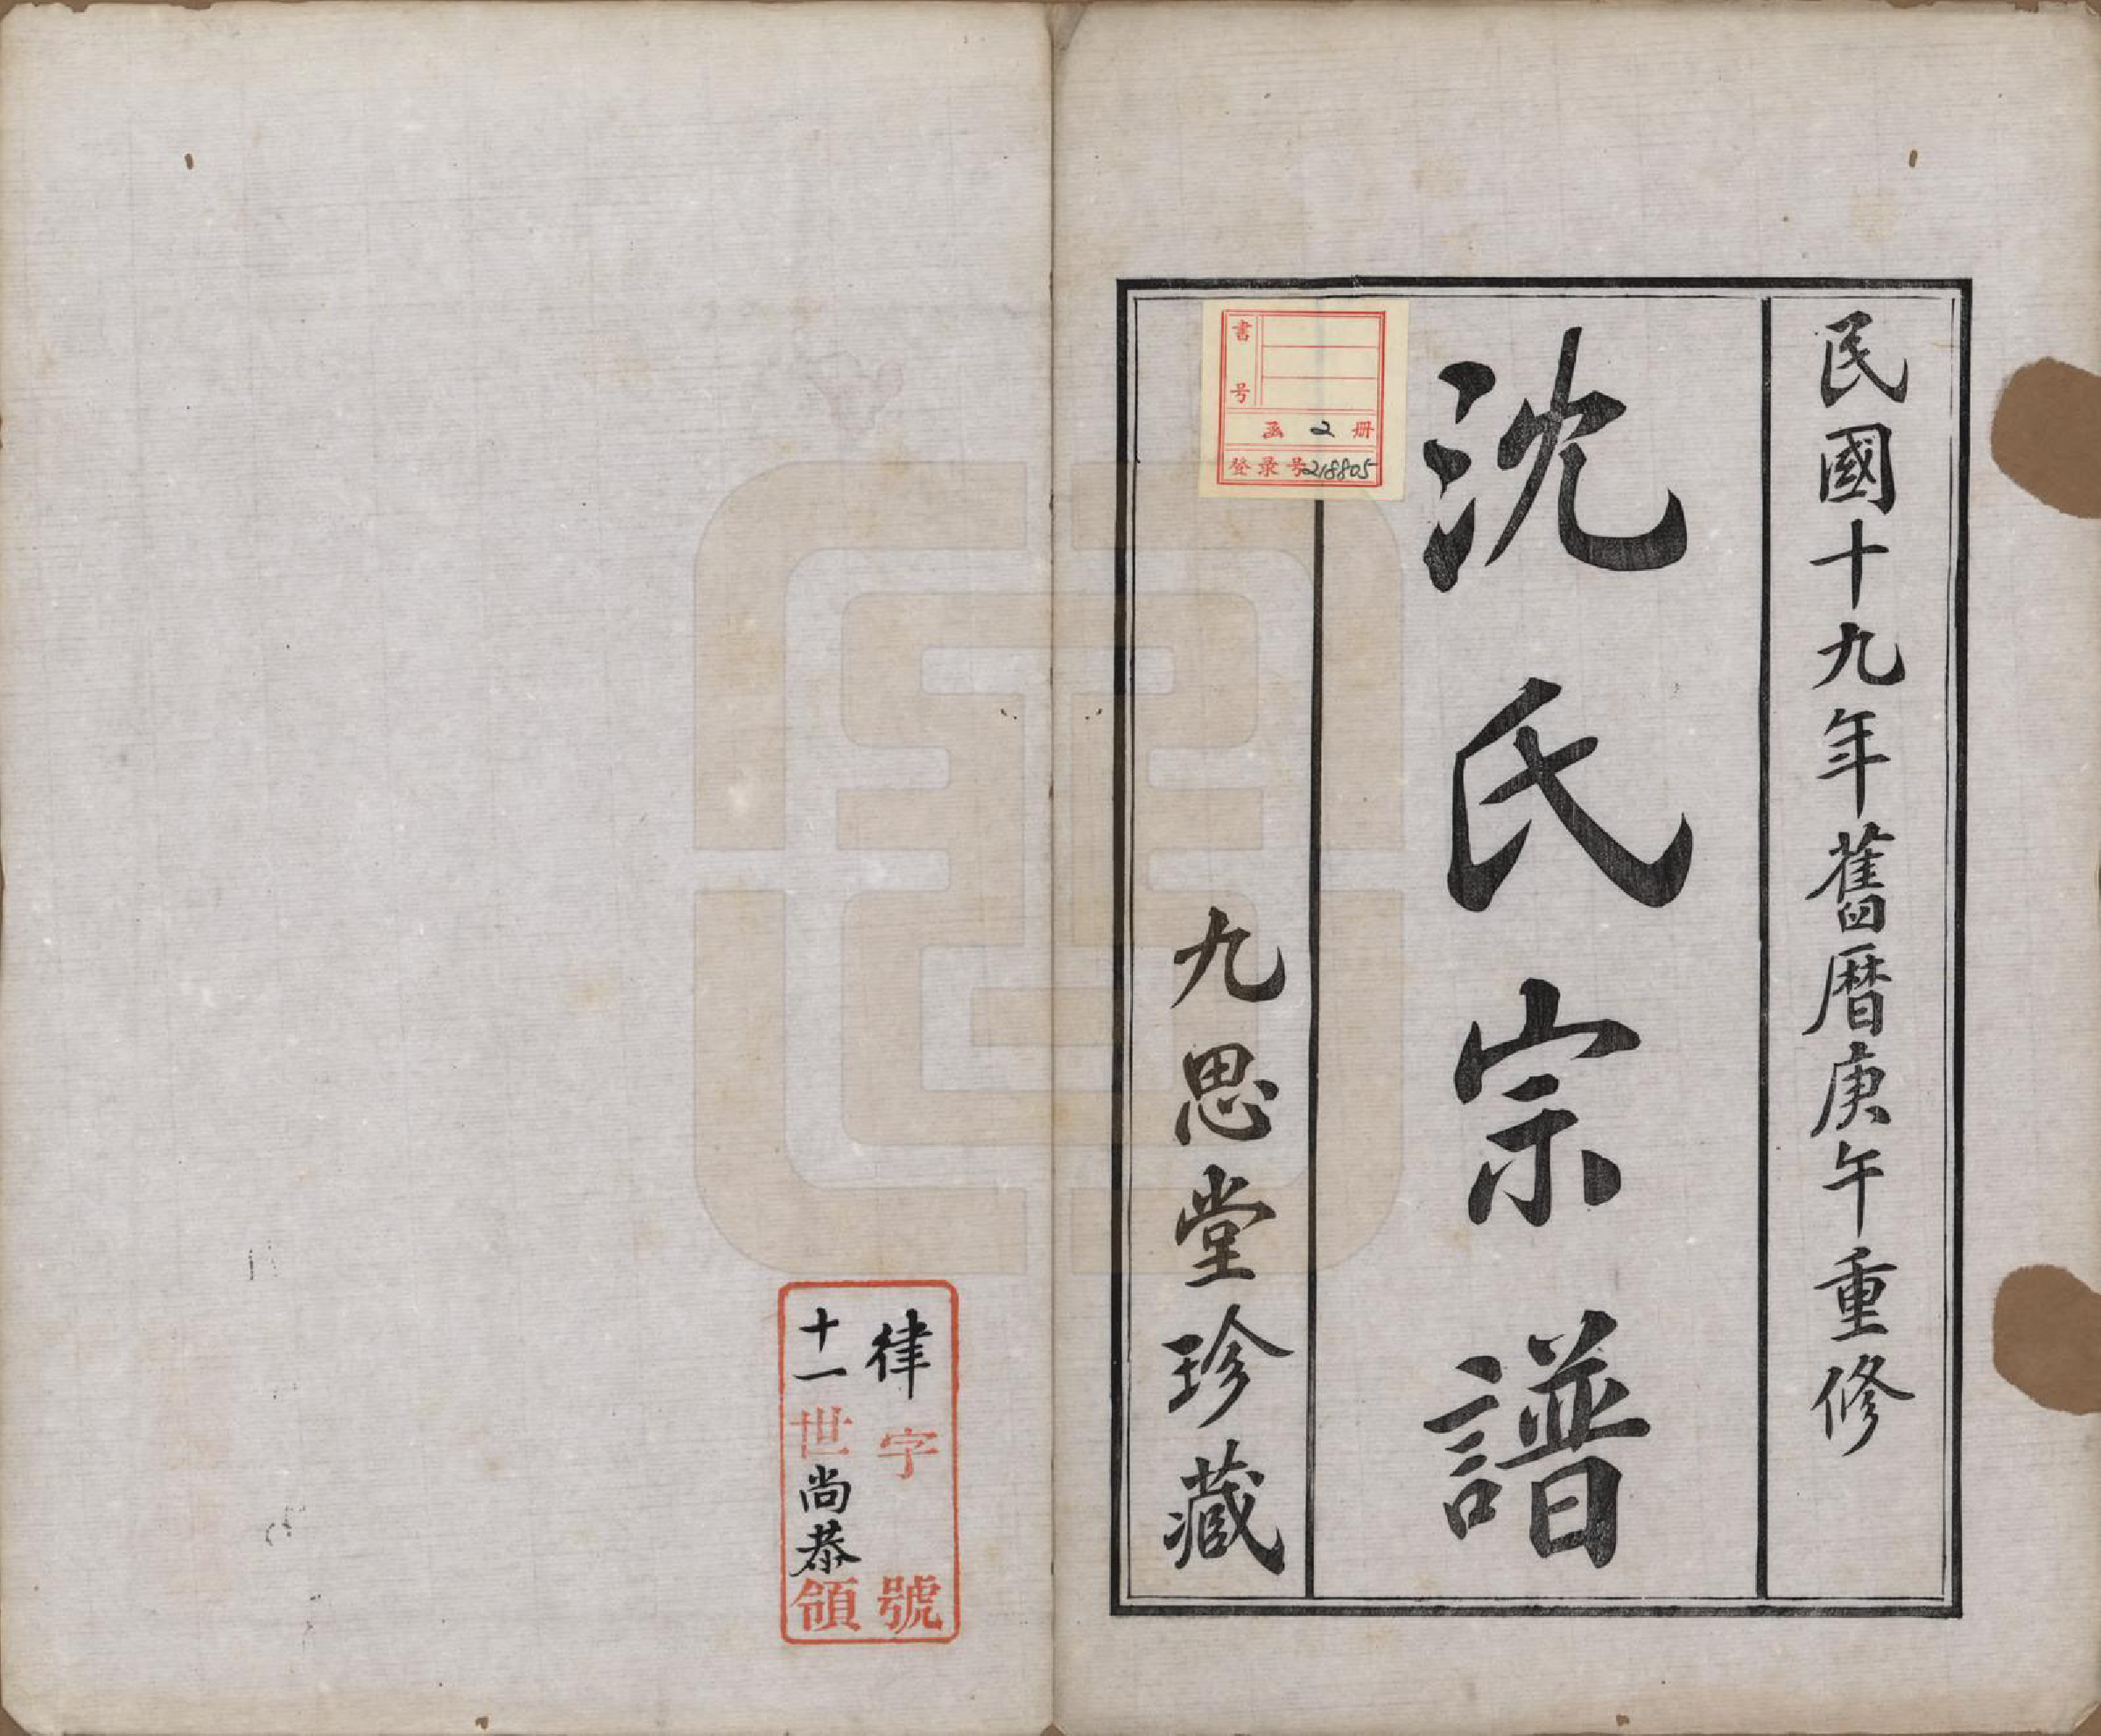 民國十九年舊曆庚午重修
沈氏宗譜
九思堂珍藏
書号
函 2 册
登录号218805
律字號
十一世尚恭領